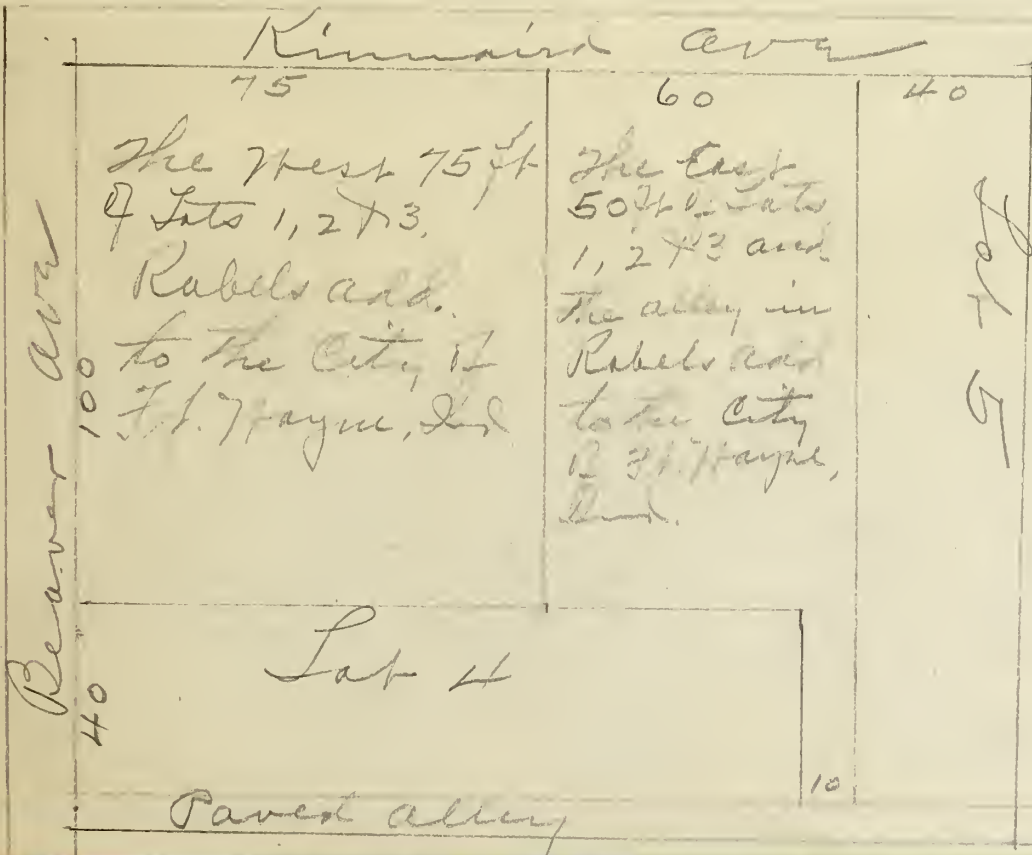 Kinnaird Ave
75
60
40
The West 75 ft
of Lots 1, 2 & 3,
Rabels add.
to the City of
Ft. Wayne, Ind
The East
50 ft of Lots
1, 2 & 3 and
the alley in
Rabels add
to the City
of Ft. Wayne,
Ind.
Lot 5
Beaver Ave
100
40
Lot 4
10
Paved alley